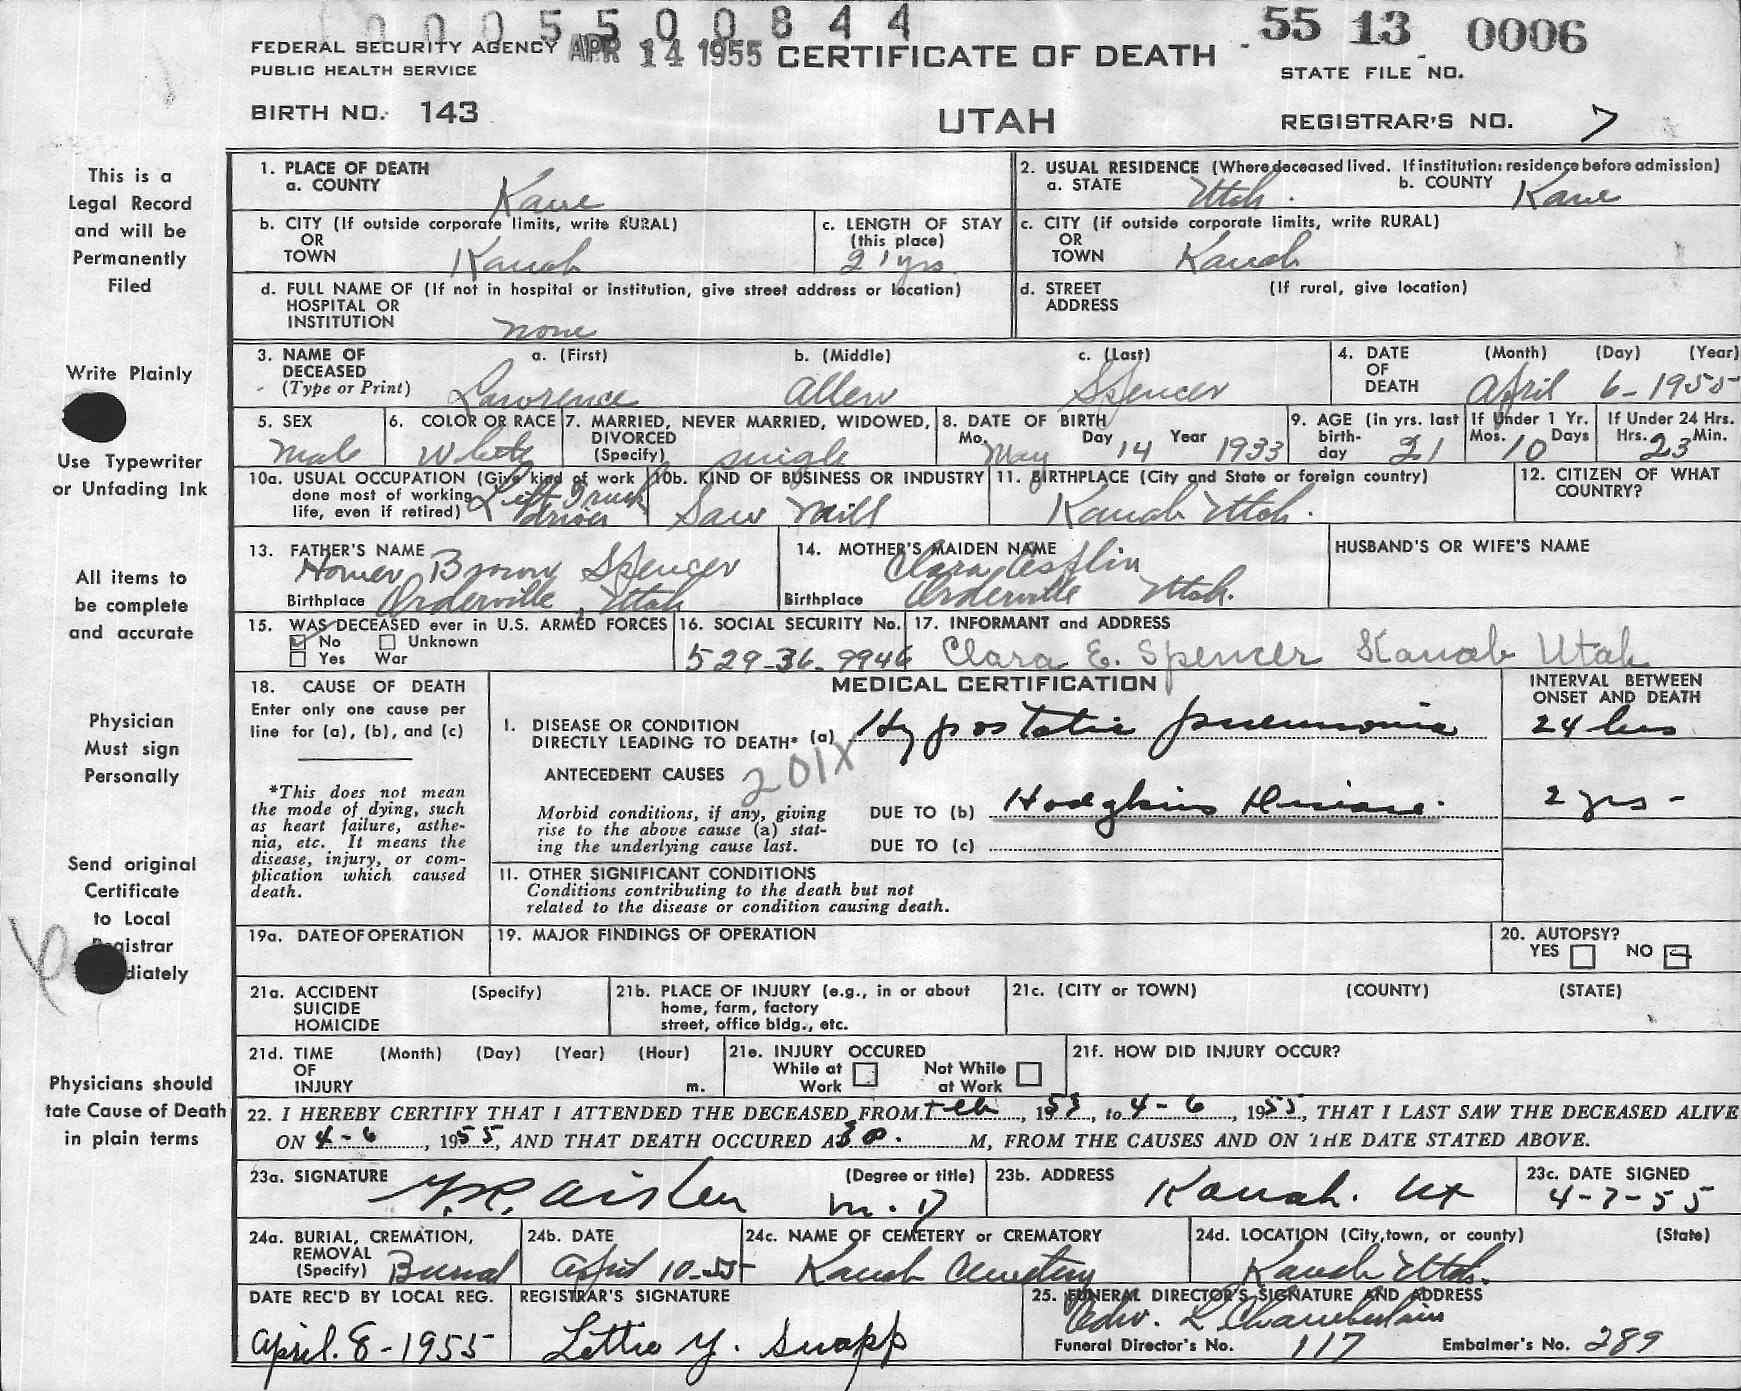 0005500844
55 13 0006
FEDERAL SECURITY AGENCY APR 14 1955 CERTIFICATE OF DEATH
PUBLIC HEALTH SERVICE STATE FILE NO.
BIRTH NO. 143 UTAH REGISTRAR'S NO. 7
This is a
Legal Record
and will be
Permanently
Filed
Write Plainly
Use Typewriter
or Unfading Ink
All items to
be complete
and accurate
Physician
Must sign
Personally
Send original
Certificate
to Local
Registrar
diately
Physicians should
tate Cause of Death
in plain terms
1. PLACE OF DEATH
a. COUNTY Kane
2. USUAL RESIDENCE (Where deceased lived. If institution: residence before admission)
a. STATE Utah. b. COUNTY Kane
b. CITY (If outside corporate limits, write RURAL)
OR
TOWN Kanab
c. LENGTH OF STAY
(this place)
21 yrs
c. CITY (if outside corporate limits, write RURAL)
OR
TOWN Kanab
d. FULL NAME OF (If not in hospital or institution, give street address or location)
HOSPITAL OR
INSTITUTION none
d. STREET (If rural, give location)
ADDRESS
3. NAME OF a. (First) b. (Middle) c. (Last)
DECEASED
(Type or Print) Lawrence Allen Spencer
4. DATE (Month) (Day) (Year)
OF
DEATH April 6-1955
5. SEX
Male
6. COLOR OR RACE
White
7. MARRIED, NEVER MARRIED, WIDOWED,
DIVORCED
(Specify) single
8. DATE OF BIRTH
Mo. Day Year
May 14 1933
9. AGE (in yrs. last
birth-
day 21
If Under 1 Yr.
Mos. Days
10
If Under 24 Hrs.
Hrs. Min.
23
10a. USUAL OCCUPATION (Give kind of work
done most of working
life, even if retired) Lift Truck
driver
10b. KIND OF BUSINESS OR INDUSTRY
Saw Mill
11. BIRTHPLACE (City and State or foreign country)
Kanab Utah.
12. CITIZEN OF WHAT
COUNTRY?
13. FATHER'S NAME
Homer Brown Spencer
Birthplace Orderville, Utah
14. MOTHER'S MAIDEN NAME
Clara Esplin
Birthplace Orderville Utah.
HUSBAND'S OR WIFE'S NAME
15. WAS DECEASED ever in U.S. ARMED FORCES
No Unknown
Yes War
16. SOCIAL SECURITY No.
529-36-9946
17. INFORMANT and ADDRESS
Clara E. Spencer Kanab Utah
18. CAUSE OF DEATH
Enter only one cause per
line for (a), (b), and (c)
*This does not mean
the mode of dying, such
as heart failure, asthe-
nia, etc. It means the
disease, injury, or com-
plication which caused
death.
MEDICAL CERTIFICATION
INTERVAL BETWEEN
ONSET AND DEATH
I. DISEASE OR CONDITION
DIRECTLY LEADING TO DEATH* (a) Hypostatic pneumonia 24 hrs
ANTECEDENT CAUSES 201X
Morbid conditions, if any, giving
rise to the above cause (a) stat-
ing the underlying cause last.
DUE TO (b) Hodgkins Disease. 2 yrs -
DUE TO (c)
11. OTHER SIGNIFICANT CONDITIONS
Conditions contributing to the death but not
related to the disease or condition causing death.
19a. DATE OF OPERATION
19. MAJOR FINDINGS OF OPERATION
20. AUTOPSY?
YES NO
21a. ACCIDENT (Specify)
SUICIDE
HOMICIDE
21b. PLACE OF INJURY (e.g., in or about
home, farm, factory
street, office bldg., etc.
21c. (CITY or TOWN) (COUNTY) (STATE)
21d. TIME (Month) (Day) (Year) (Hour)
OF
INJURY m.
21e. INJURY OCCURED
While at Not While
Work at Work
21f. HOW DID INJURY OCCUR?
22. I HEREBY CERTIFY THAT I ATTENDED THE DECEASED FROM Feb, 1953, to 4-6, 1955, THAT I LAST SAW THE DECEASED ALIVE
ON 4-6, 1955, AND THAT DEATH OCCURED A M, FROM THE CAUSES AND ON THE DATE STATED ABOVE.
23a. SIGNATURE (Degree or title)
Aiken M.D
23b. ADDRESS
Kanab. Ut
23c. DATE SIGNED
4-7-55
24a. BURIAL, CREMATION,
REMOVAL
(Specify) Burial
24b. DATE
April 10-55
24c. NAME OF CEMETERY OR CREMATORY
Kanab Cemetery
24d. LOCATION (City, town, or county) (State)
Kanab Utah.
DATE REC'D BY LOCAL REG.
April. 8-1955
REGISTRAR'S SIGNATURE
Lettie Y. Swapp
25. FUNERAL DIRECTOR'S SIGNATURE AND ADDRESS
Edw. L Chamberlain
Funeral Director's No. 117 Embalmer's No. 289